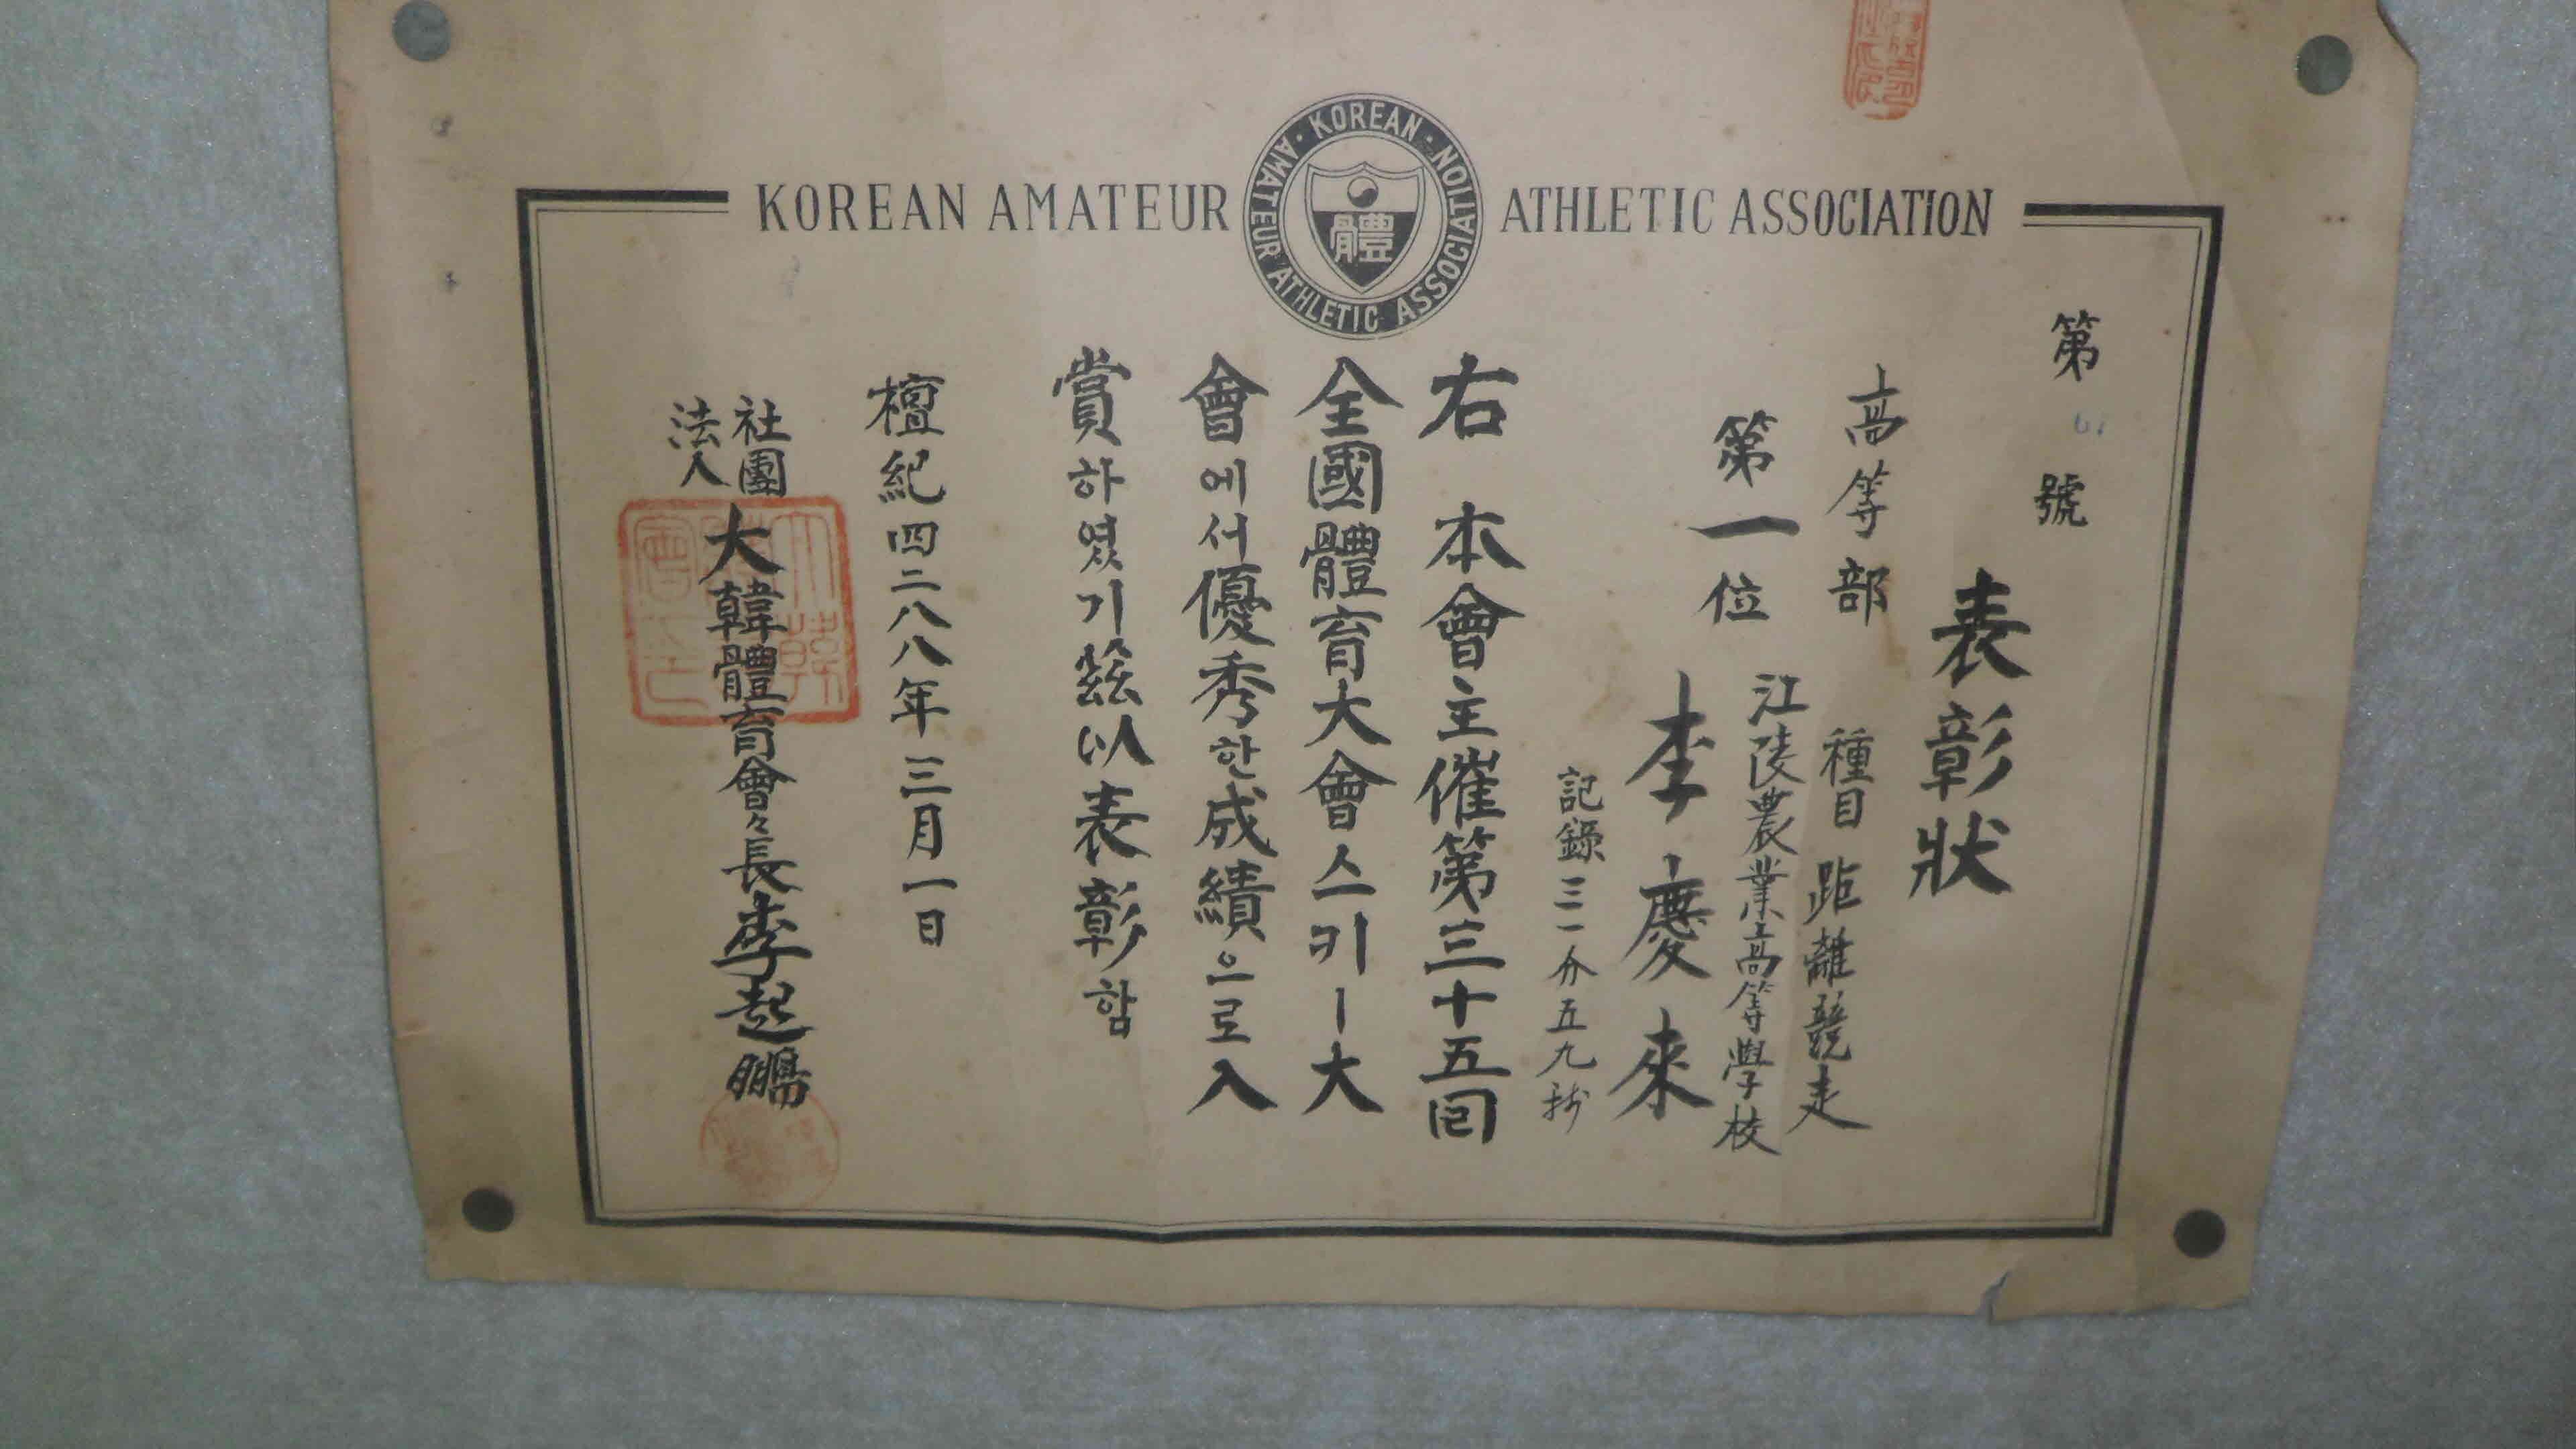 KOREAN AMATEUR ATHLETIC ASSOCIATION
· KOREAN · AMATEUR ATHLETIC ASSOCIATION
體
第 號
表彰狀
高等部 種目 距離競走
江陵農業高等學校
第一位 李慶來
記錄 三一分五九秒
右 本會主催第三十五回
全國體育大會스키ー大
會에서優秀한成績으로入
賞하였기玆以表彰함
檀紀四二八八年三月一日
社團
法人
大韓體育會々長李起鵬